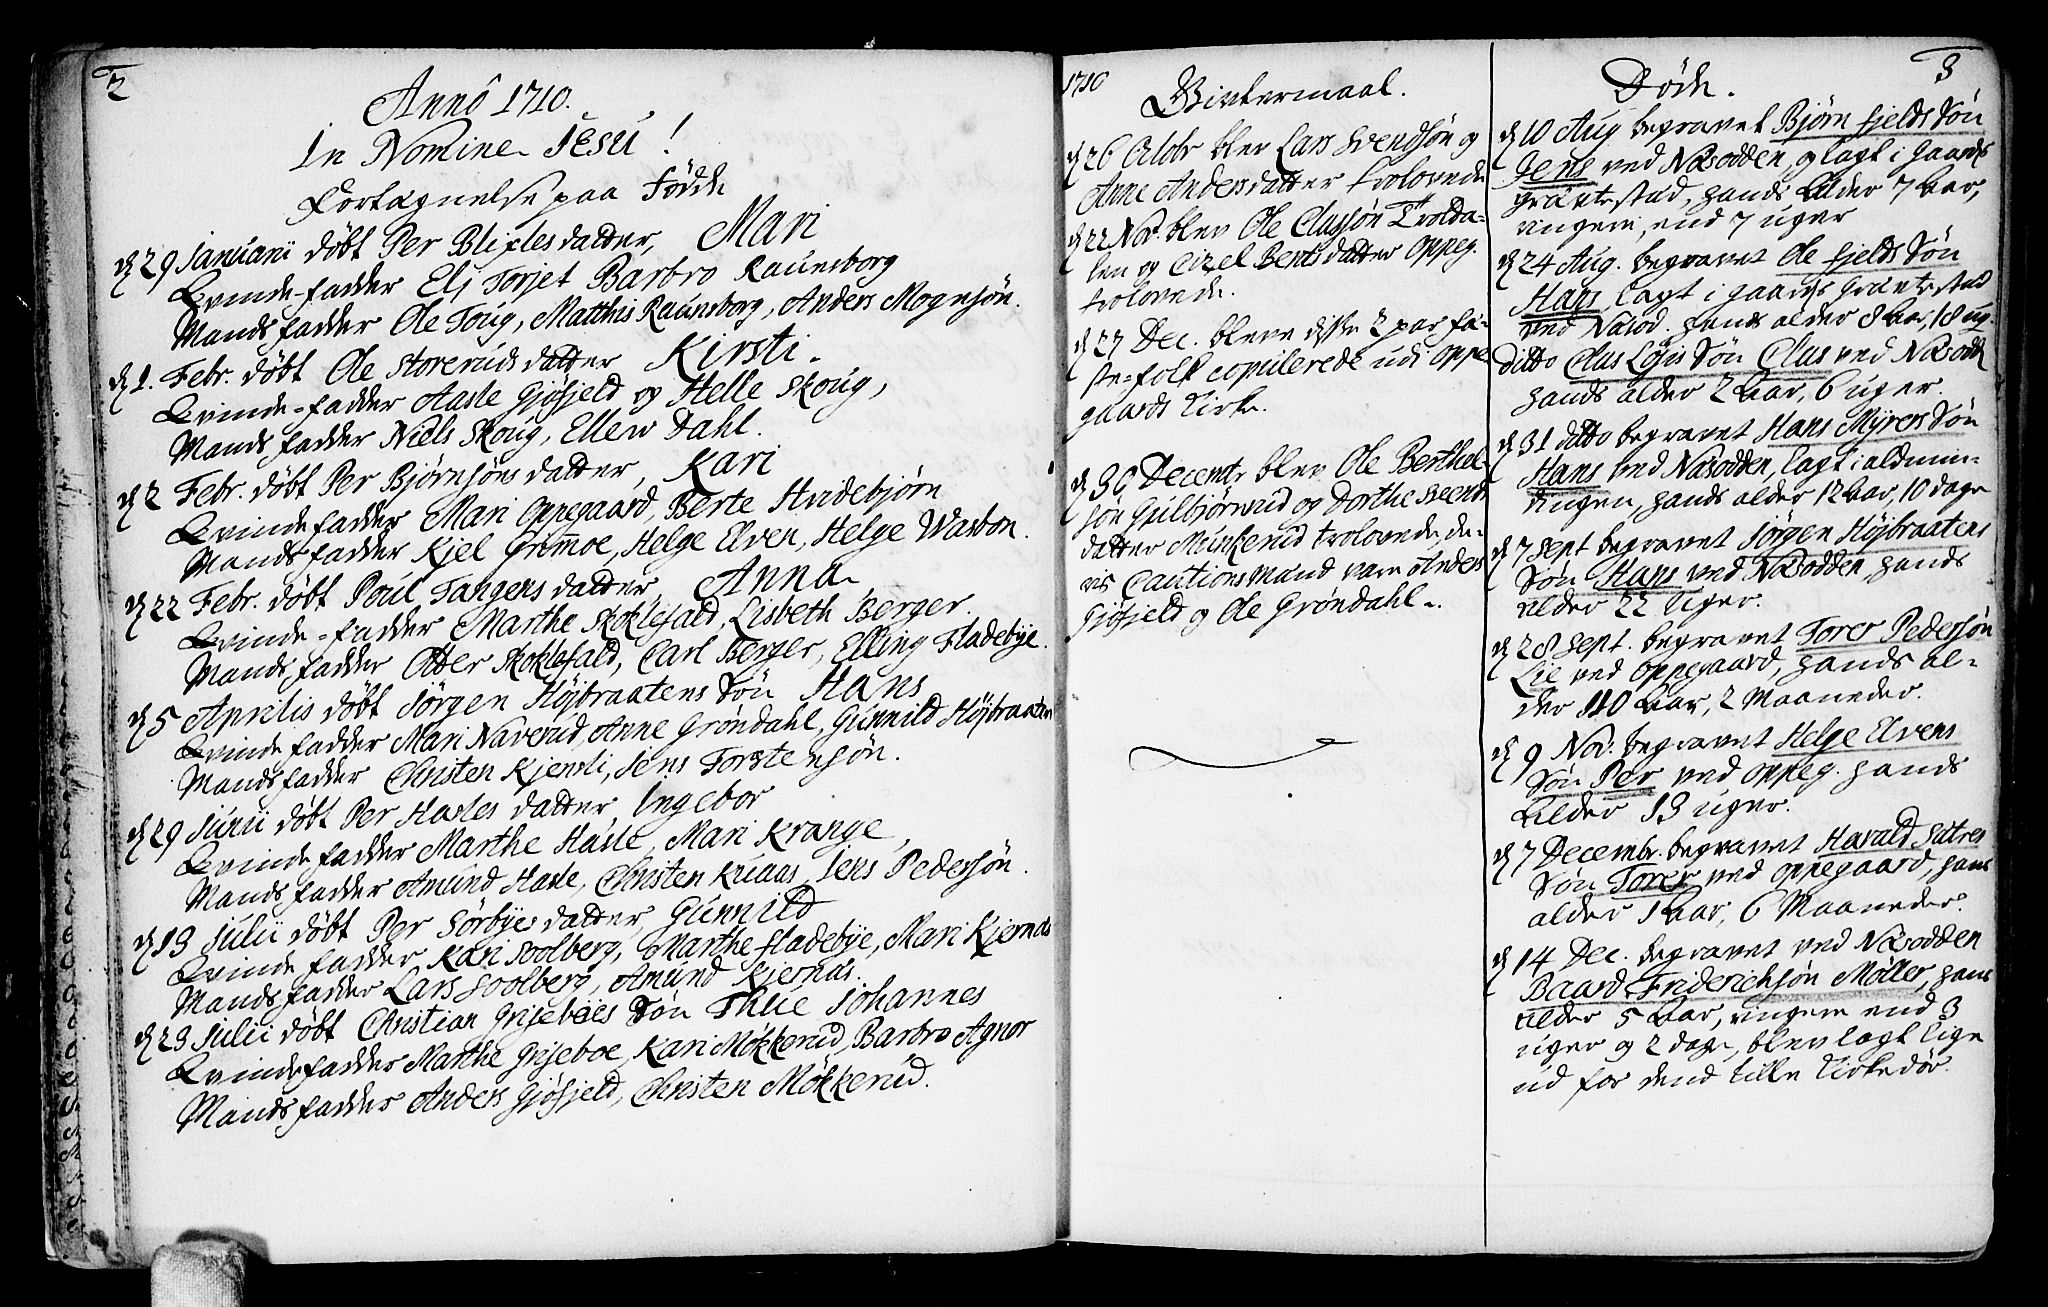 2
Anno 1710.
In Nomine Jesu!
Fortegnelse paa Fødde
d 29 Januarii døbt Per Blixles datter, Mari
Qvinde-fadder Eli Torjet Barbro Raunsborg
Mands fadder Ole Toug, Matthis Raunsborg, Anders Mognsøn.
d 1. Febr. døbt Ole Storeruds datter Kirsti.
Qvinde-fadder Aasle Gjøfjeld og Helle Skoug,
Mands fadder Niels Skoug, Ellew Dahl.
d 2 Febr. døbt Per Bjørnsøns datter, Kari
Qvinde fadder Mari Oppegaard, Berte Hvidebjørn
Mands fadder Kjel Grimmoe, Helge Elven, Helge Wasbon.
d 22 Febr. døbt Poul Tangens datter, Anna
Qvinde-fadder Marthe Skoklefald, Lisbeth Berger.
Mands fadder Otter Skoklefald, Carl Berger, Elling Fladebye.
d 5 Aprilis døbt Jørgen Højbraatens Søn Hans
Qvinde fadder Mari Naverud, Anne Grøndahl, Gunnild Højbraaten
Mands fadder Christen Kjernli, Jens Torstensøn.
d 29 Junii døbt Per Hasles datter, Ingebor
Qvinde fadder Marthe Hasle, Mari Krange,
Mands fadder Amund Hasle, Christen Kruaas, Jens Pedersøn.
d 13 Julii døbt Per Sørbyes datter, Gunnild
Qvinde fadder Kari Soolberg, Marthe Fladebye, Mari Kjernas
Mands fadder Lars Soolberg, Amund Kjernas.
d 23 Julii døbt Christian Grisebøes Søn Thue Johannes
Qvinde fadder Marthe Griseboe, Kari Møkkerud, Barbro Agnor
Mands fadder Anders Gjøfjeld, Christen Møkkerud.
1710
Bintermaal.
d 26 Octobr blev Lars Svendsøn og
Anne Anders datter trolovede
d 22 Nov. blev Ole Clussøn Trolda-
len og Cizel Bentsdatter Oppeg.
trolovede.
d 27 Dec. bleve disse 2 par fæ-
ste-folk copulerede udi Oppe
gaards Kirke.
d 30 Decembr blev Ole Berthel-
søn Gulbjørnrud og Dorthe Svends
datter Munkerud trolovede, de-
ris Cautions mænd vare Anders
Gjøfjeld og Ole Grøndahl.
3
Døde.
d 10 Aug begravet Bjørn fjelds Søn
Jens ved Næsodden, og lagt i gaards
grafvestad, hands Alder 7 Aar,
ringere end 7 uger
d 24 Aug. begravet Ole fjelds Søn
Hans lagt i gaards grafvestad
ved Næsod. hands alder 8 Aar, 18 ug.
ditto Clus Løjis Søn Clus ved Næsodd
hands alder 2 Aar, 6 uger.
d 31 ditto begravet Hans Myrers Søn
Hans ved Næsodden, lagt i aldmin-
dingen, hands alder 12 Aar, 10 dage
d 7 Sept begravet Jørgen Højbraatens
Søn Hans ved Næsodden, hands
alder 22 Uger.
d 28 Sept. begravet Torer Pedersøn
Lie ved Oppegaard, hands al-
der 110 Aar, 2 Maaneder.
d 9 Nov. begravet Helge Elvens
Søn Per ved Oppeg. hands
Alder 13 uger.
d 7 Decembr. begravet Harald Sætres
Søn Torer ved Oppegaard, hans
alder 1 Aar, 6 Maaneder.
d 14 Dec. begravet ved Næsodden
Baard Friderichsøn Møller, hans
alder 5 Aar, ringere end 3
uger og 2 dage, blev lagt lige
ud for dend lille Kirkedør.